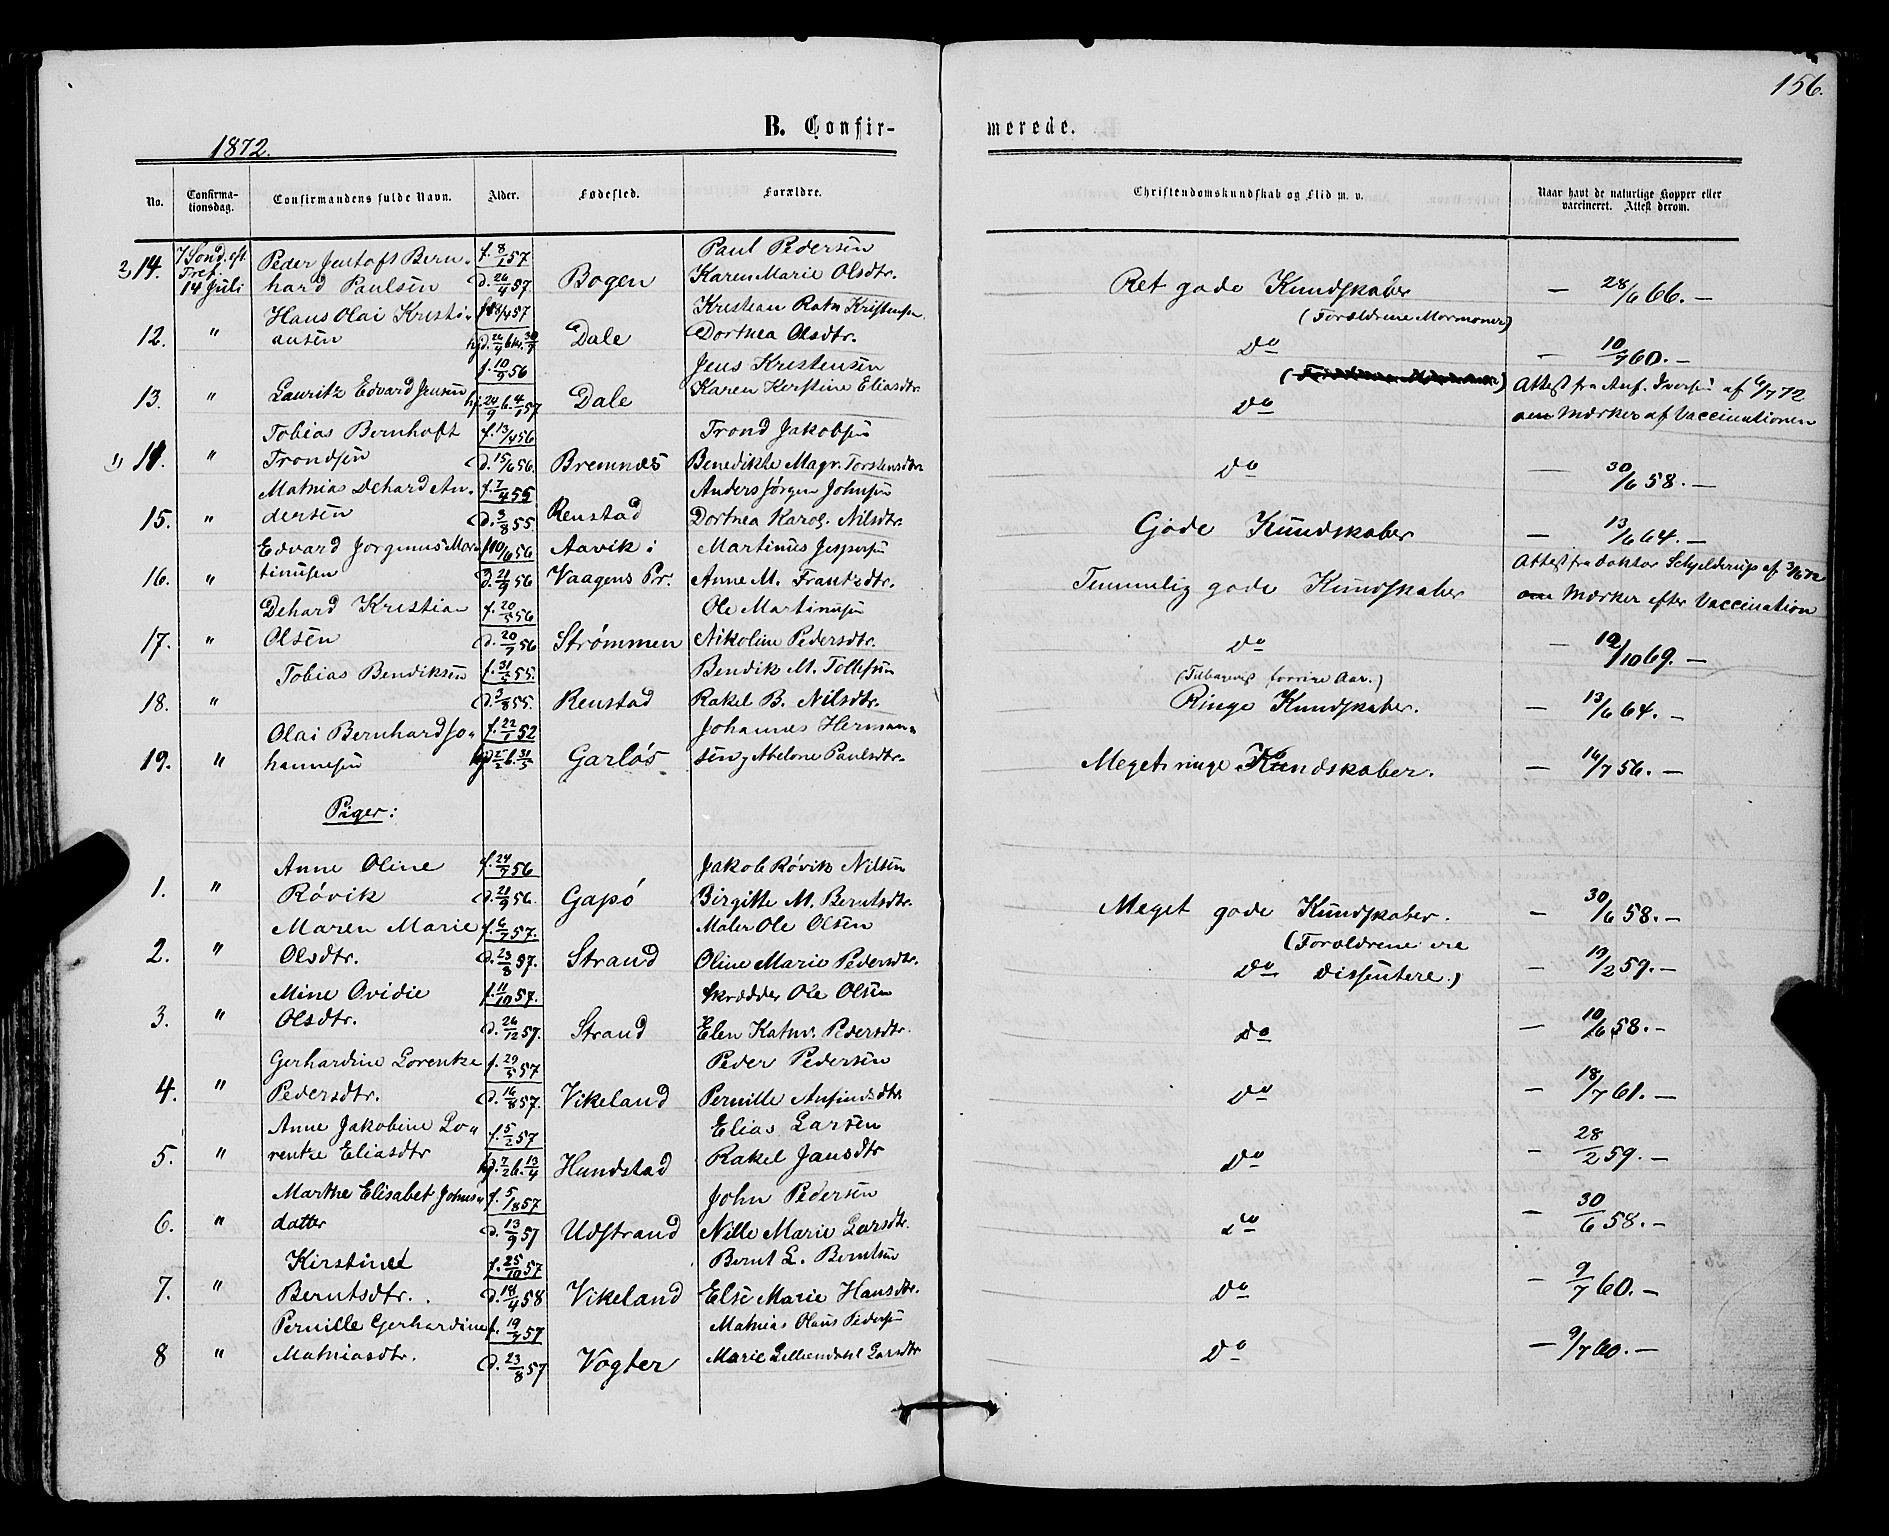 156.
B. Confir-
merede.
1872.
No.
Confirma-
tionsdag.
Confirmandens fulde Navn.
Alder.
Fødested.
Forældre.
Christendomskundskab og Flid m. v.
Naar havt de naturlige Kopper eller
vaccineret. Attest derom.
2) 14. 7 Sond. eft. Tref. 14 Juli
Peder Jentoft Bern- f. 8/1 57 Paul Pedersen
hard Paulsen d. 26/4 57 Bogen Karen Marie Olsdtr. Ret gode Kundskaber — 28/6 66. —
Hans Olai Kristi- 57 Kristian Kristensen (Forældrene Mormoner)
12. " ansen Dale Dorthea Olsdtr. do — 10/7 60. —
f. 10/9 56 Jens Kristensen
13. " Lauritz Edvard Jensen hjd. 24/9 b. 4/1 57 Dale Karen Kerstine Eliasdtr. do Attest fra Anf. Iversen af 6/7 72
om Mærker af Vaccinationen
Tobias Bernhoft f. 13/4 56 Trond Jakobsen
1) 11. " Trondsen d. 15/6 56. Bremnæs Benedikte Magr. Torstensdtr. do — 30/6 58. —
Mathias Dehard An- f. 7/4 55 Anders Jørgen Johnsen
15. " dersen d. 3/8 55 Renstad Dorthea Karol. Nilsdtr. Gode Kundskaber — 13/6 64. —
Edvard Jørgenus Mar- f. 10/6 56 Aavik i Martinus Jespersen Attest fra doktor Schjelderup af 3/6 72
16. " tinusen d. 21/9 56 Vaagens Pr. Anne M. Frantzdtr. Temmelig gode Kundskaber om Mærker efter Vaccination
Dehard Kristian f. 20/5 56 Ole Martinusen
17. " Olsen d. 20/7 56 Strømmen Nikoline Pedersdtr. do — 12/10 69. —
Tobias Bendiksen f. 31/5 55. Bendik M. Tollefsen (Tilbagevist forrige Aar.)
18. " d. 3/8 55. Renstad Rakel B. Nilsdtr. Ringe Kundskaber. — 13/6 64. —
Olai Bernhard Jo- f. 22/1 52 Johannes Herman-
19. " hannesen hjd. 2/2 b. 31/5 Garløs sen, Abelone Paulsdtr. Meget ringe Kundskaber. — 16/7 56. —
Piger:
Anne Oline f. 24/7 56 Jakob Røvik Nilsen
1. " Røvik d. 21/9 56. Gapø Birgitte M. Berntsdtr. Meget gode Kundskaber. — 30/6 58. —
Maren Marie f. 6/7 57. Maler Ole Olsen (Forældrene ere
2. " Olsdtr. d. 23/8 57. Strand Oline Marie Pedersdtr. do Dissentere.) — 19/2 59. —
Mine Ovidie f. 11/10 57. Skrædder Ole Olsen
3. " Olsdtr. d. 26/12 57. Strand Elen Kathr. Pedersdtr. do — 10/6 58. —
Gerhardine Lorentze f. 29/5 57 Peder Pedersen
4. " Pedersdtr. d. 16/8 57. Vikeland Pernille Anfindsdtr. do — 18/7 61. —
Anne Jakobine Lo- f. 5/2 57 Elias Larsen
5. " rentze Eliasdtr hjd. 7/2 b. 13/4 Hundstad Rakel Jansdtr do — 28/2 59. —
Marthe Elisabet Johns- f. 5/8 57 John Pedersen
6. " datter d. 13/9 57 Udstrand Nille Marie Larsdtr. do — 30/6 58. —
Kirstine f. 25/10 57 Bernt L. Berntsen
7. " Berntsdtr. d. 18/4 58 Vikeland Else Marie Hansdtr. do — 9/7 60. —
Pernille Gerhardine f. 19/7 57 Mathias Olaus Pedersen
8 " Mathiasdtr. d. 23/8 57 Vogter Marie Lilliendahl Larsdtr do — 9/7 60. —